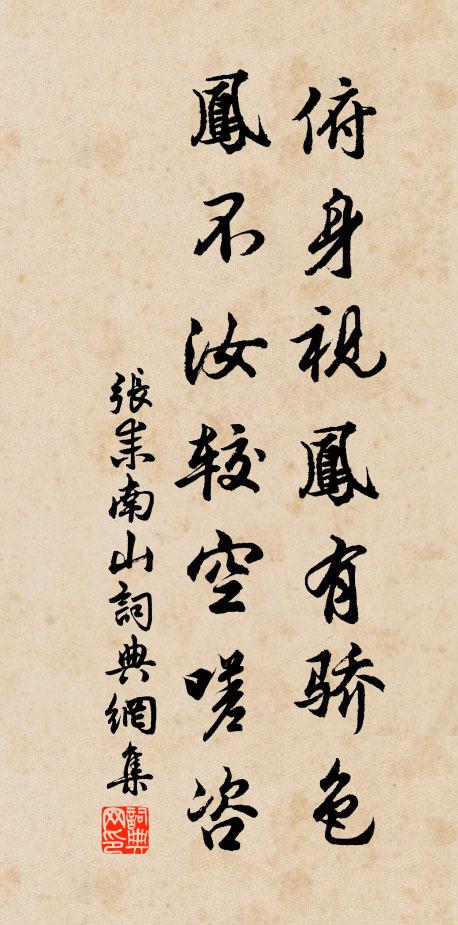 俯身視鳳有骄色
鳳不汝較空嗟咨
張耒南山詞典網集
詞典
网印